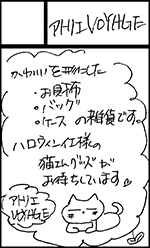 アトリエVOYAGE
かわいいを形にした
・お財布
・バッグ
・ケース の雑貨です。
ハロウィン仕様の
猫さんグッズが
お待ちしています。
アトリエ
VOYAGE